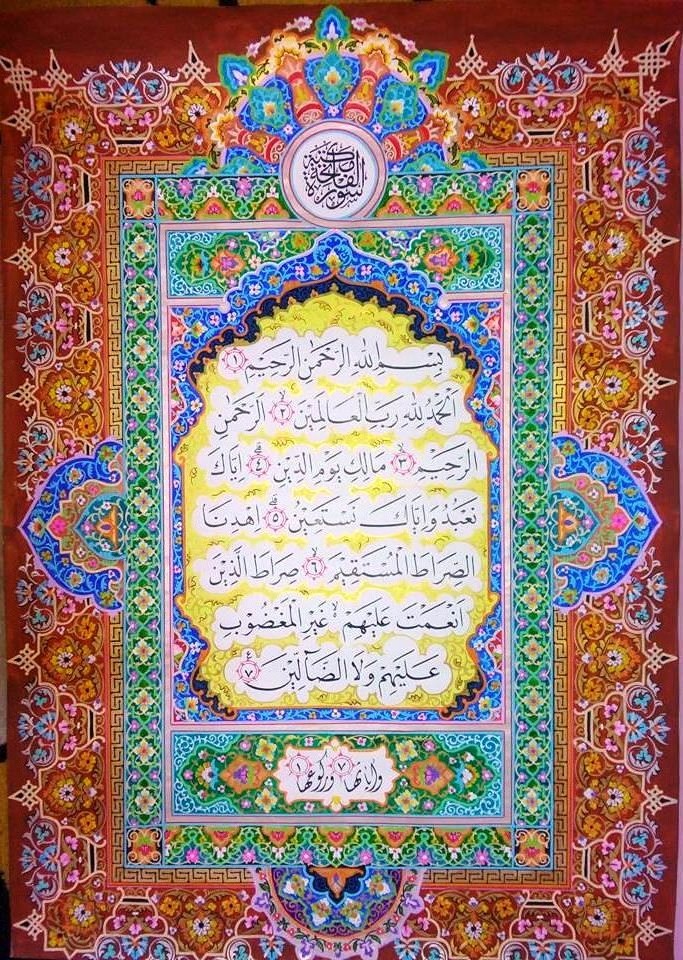 سورة الفاتحة مكية
بِسْمِ اللهِ الرَّحْمٰنِ الرَّحِيْمِ ١
اَلْحَمْدُ لِلّٰهِ رَبِّ الْعَالَمِيْنَ ٢ اَلرَّحْمٰنِ
الرَّحِيْمِ ٣ مَالِكِ يَوْمِ الدِّيْنِ ٤ اِيَّاكَ
نَعْبُدُ وَاِيَّاكَ نَسْتَعِيْنُ ٥ اِهْدِنَا
الصِّرَاطَ الْمُسْتَقِيْمَ ٦ صِرَاطَ الَّذِيْنَ
اَنْعَمْتَ عَلَيْهِمْ غَيْرِ الْمَغْضُوْبِ
عَلَيْهِمْ وَلَا الضَّآلِّيْنَ ٧
واياتها ٧ وركوعها ١